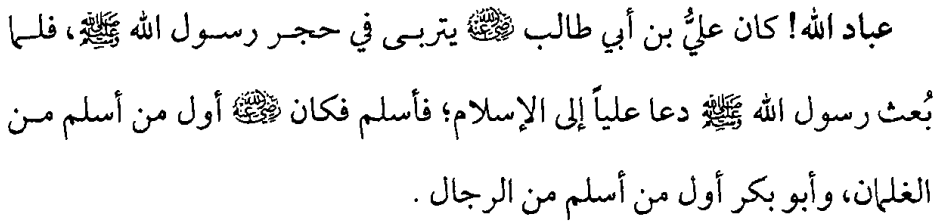 عباد الله! كان عليُّ بن أبي طالب رضي الله عنه يتربى في حجر رسول الله ﷺ، فلما
بُعث رسول الله ﷺ دعا علياً إلى الإسلام؛ فأسلم فكان رضي الله عنه أول من أسلم من
الغلمان، وأبو بكر أول من أسلم من الرجال .